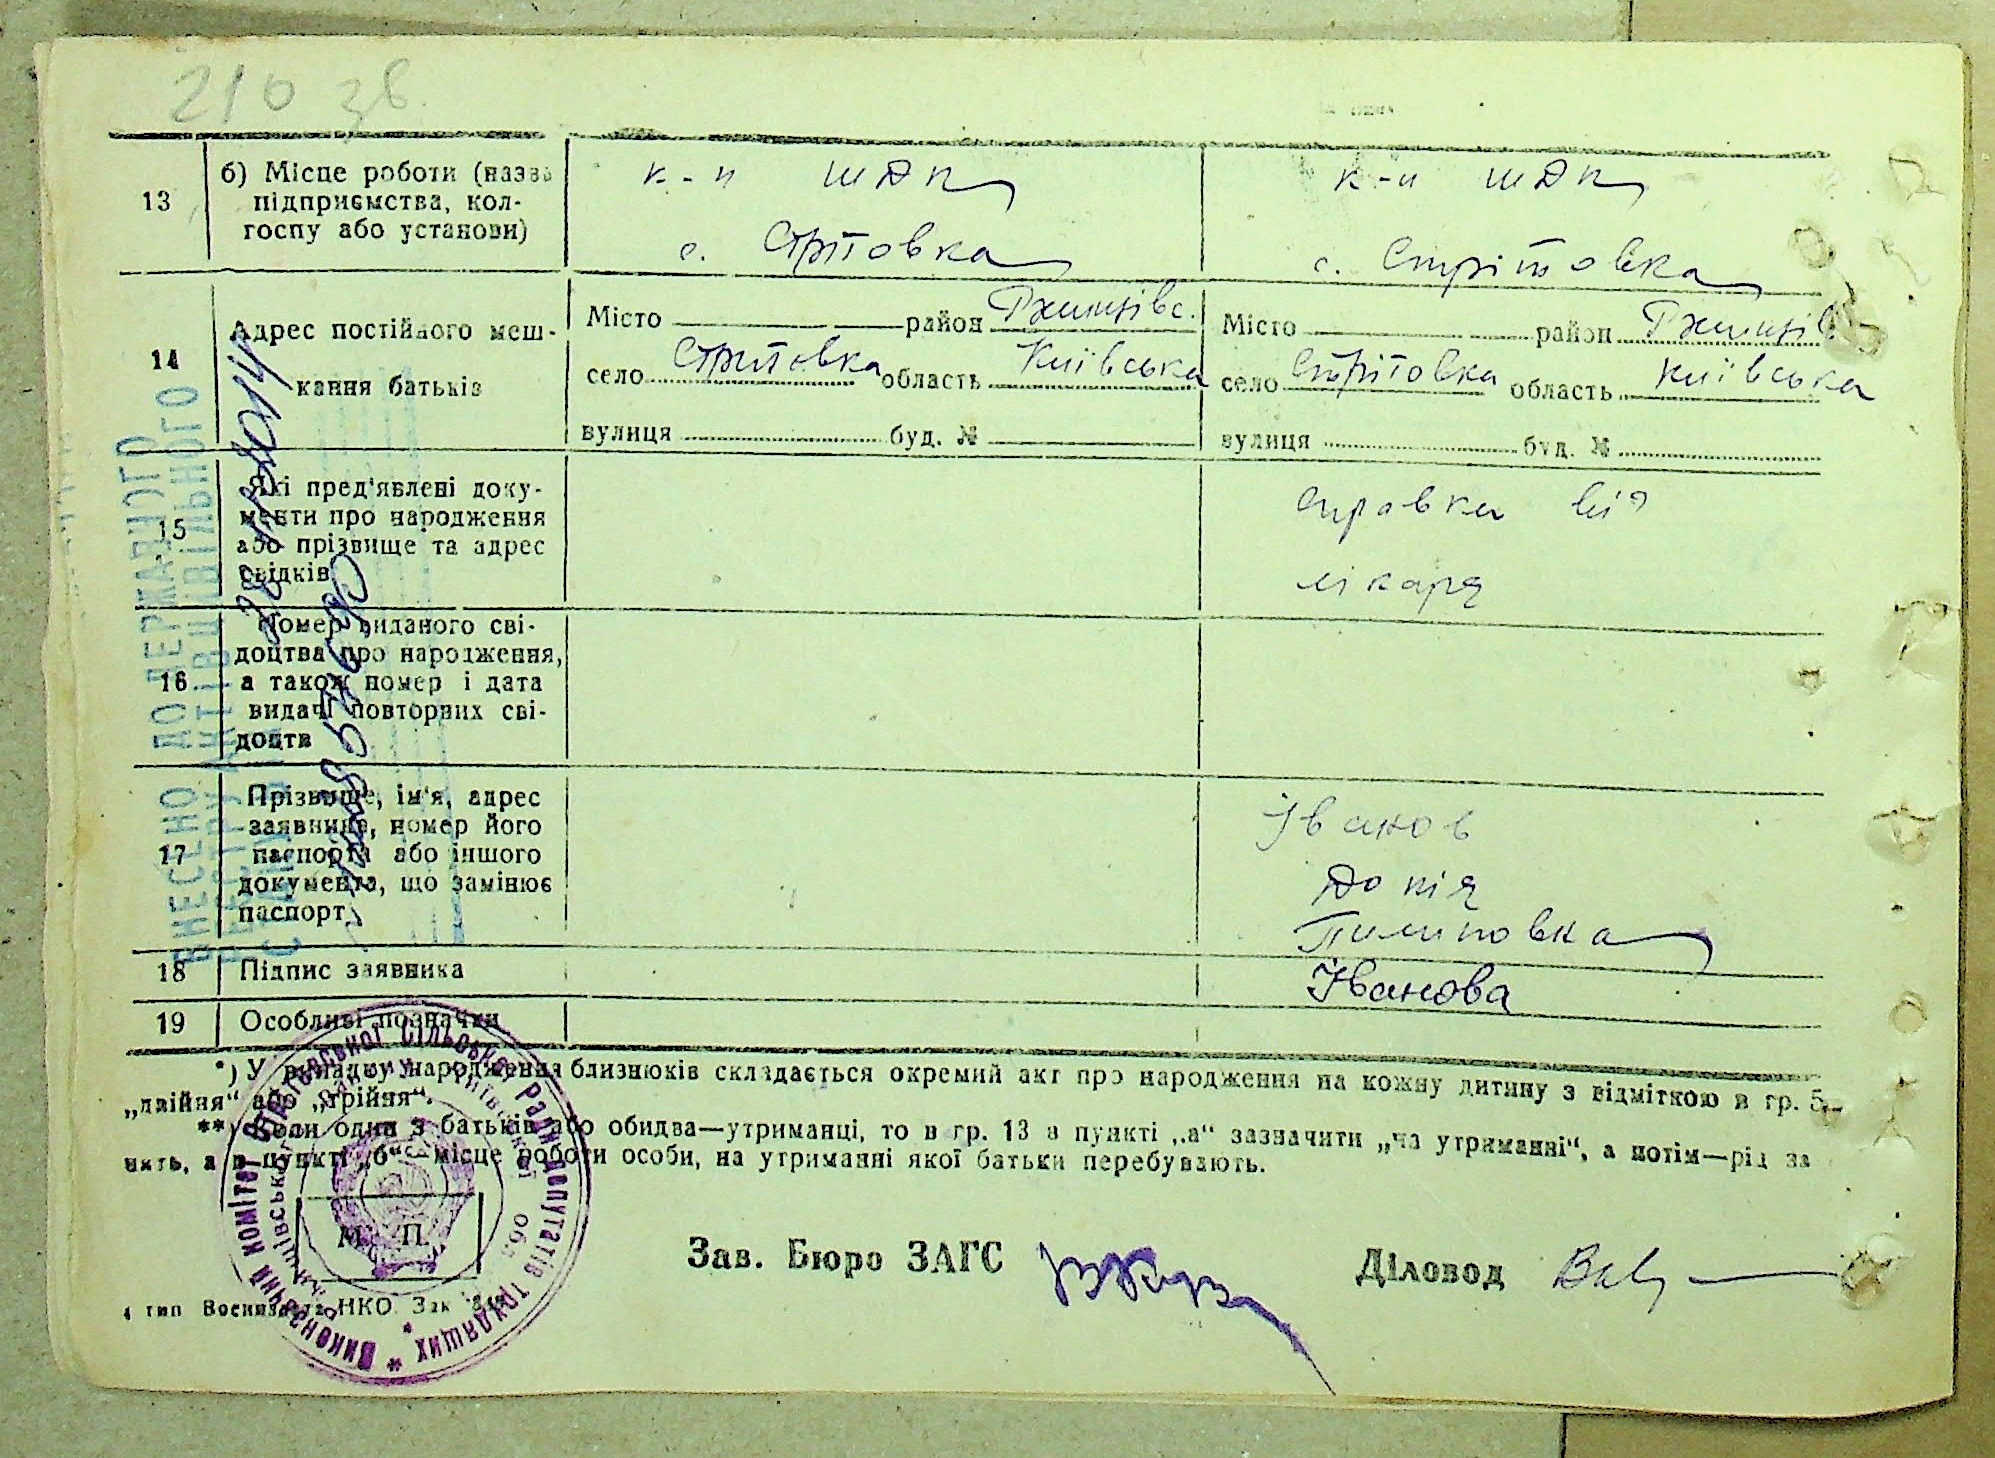 210 зв.
13
б) Місце роботи (назва
підприємства, кол-
госпу або установи)
к-п ШДК
с. Стрітовка
к-п ШДК
с. Стрітовка
14
Адрес постійного меш-
кання батьків
Місто район Ржищівс.
село Стрітовка область Київська
вулиця буд. №
Місто район Ржищів
село Стрітовка область Київська
вулиця буд. №
15
Які пред'явлені доку-
менти про народження
або прізвище та адрес
свідків
Справка від
лікаря
16
Номер виданого сві-
доцтва про народження,
а також номер і дата
видачі повторних сві-
доцтв
17
Прізвище, ім'я, адрес
заявника, номер його
паспорта або іншого
документа, що замінює
паспорт
Іванов
18
Підпис заявника
Іванова
19
Особливі позначки
*) У випадку народження близнюків складається окремий акт про народження на кожну дитину з відміткою в гр. 5
„двійня“ або „трійня“.
**) Коли один з батьків або обидва—утриманці, то в гр. 13 в пункті „а“ зазначити „на утриманні“, а потім—рід за
нять, а в пункті „б“—місце роботи особи, на утриманні якої батьки перебувають.
М. П.
Зав. Бюро ЗАГС
Діловод
4 тип Воениздата НКО. Зак
ВНЕСЕНО ДО ДЕРЖАВНОГО
РЕЕСТРУ АКТІВ ЦИВІЛЬНОГО
СТАНУ
Виконавчий комітет Стрітовської сільської Ради депутатів трудящих